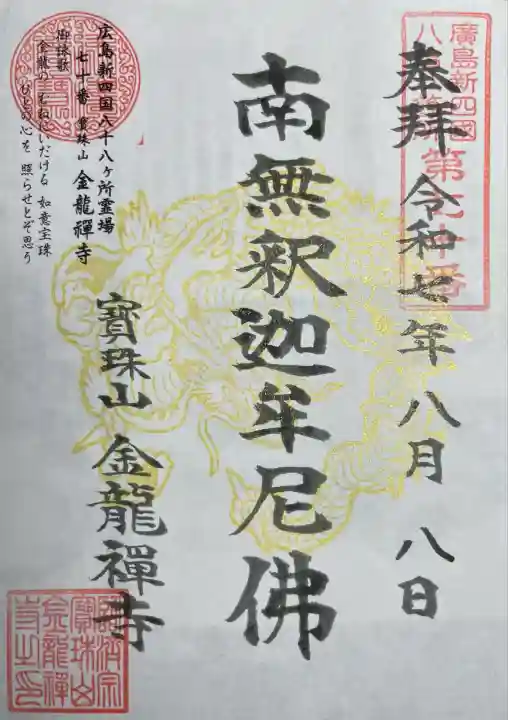 廣島新四國
八
第七十番
奉拝 令和七年 八月 八日
南無釈迦牟尼佛
寶珠山 金龍禅寺
広島新四国八十八ヶ所霊場
七十番 宝珠山 金龍禅寺
御詠歌
金龍の むねにいだける 如意宝珠
むじの心を 照らせとぞ思う
臨済宗
寶珠山
金龍禅
寺之印